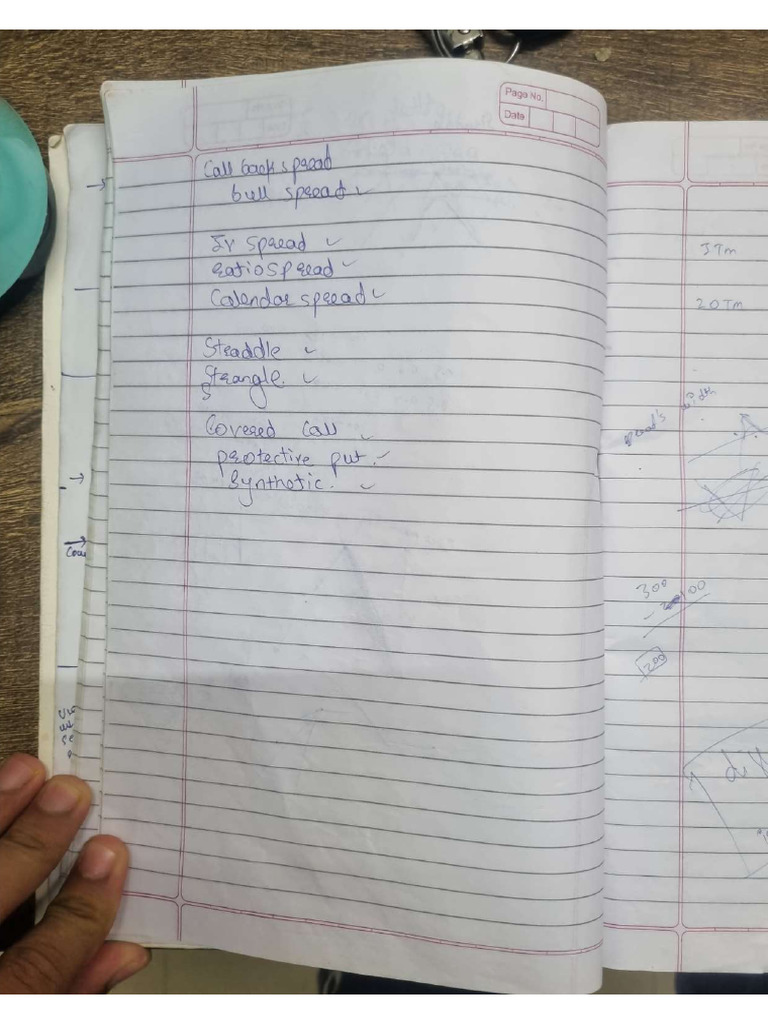 Page No.
Date
Call back spread
bull spread ✓
Iv spread ✓
ratio spread ✓
Calendar spread ✓
Straddle ✓
Strangle. ✓
S
Covered Call ✓
protective put. ✓
Synthetic. ✓
→
→
→
Cou
ITm
20Tm
width
300
200